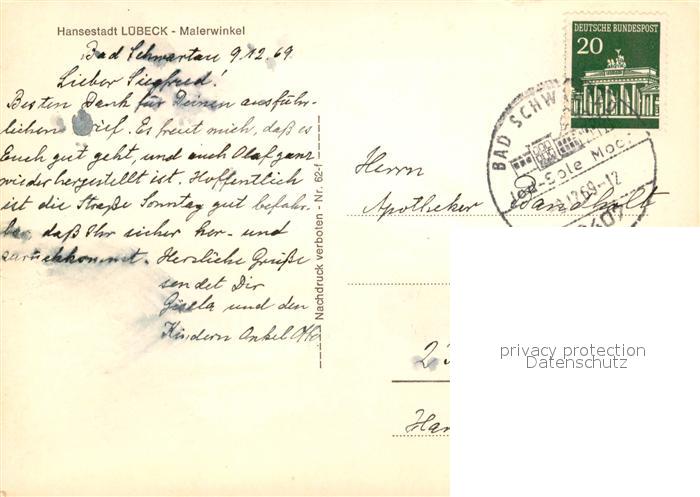 Hansestadt LÜBECK - Malerwinkel
Bad Schwartau 9.12.69
Lieber Siegfried!
Besten Dank für Deinen ausführ-
lichen Brief. Es freut mich, daß es
Euch gut geht, und auch Olaf ganz
wiederhergestellt ist. Hoffentlich
ist die Straße Sonntag gut befahr-
bar, daß Ihr sicher her- und
zurückkommt. Herzliche Grüße
sendet Dir
Gisela und den
Kindern Onkel Otto
Nachdruck verboten - Nr. 62-f
DEUTSCHE BUNDESPOST
20
BAD SCHW
Jod-Sole Moor
12.69-12
Herrn
Apotheker Wandholt
2
Han
privacy protection
Datenschutz